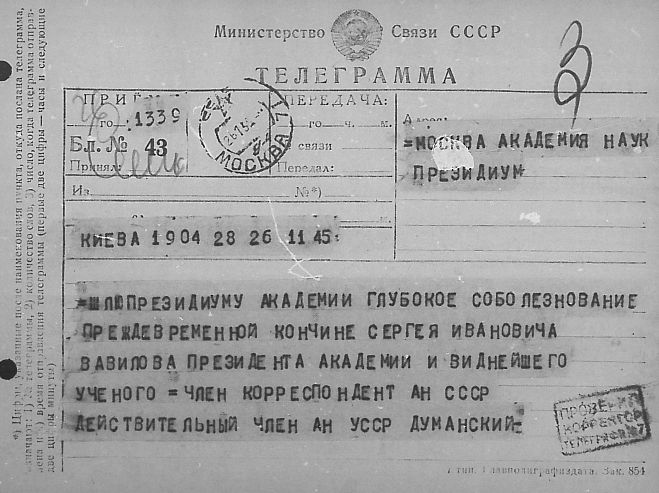 Министерство Связи СССР
ТЕЛЕГРАММА
ПЕРЕДАЧА:
го 1339
го ч. м.
Бл. № 43
связи
Принял:
Передал:
Из
№*)
МОСКВА
Адрес:
=МОСКВА АКАДЕМИЯ НАУК
ПРЕЗИДИУМ
КИЕВА 1904 28 26 11 45=
=ШЛЮПРЕЗИДИУМУ АКАДЕМИИ ГЛУБОКОЕ СОБОЛЕЗНОВАНИЕ
ПРЕЖДЕВРЕМЕННОЙ КОНЧИНЕ СЕРГЕЯ ИВАНОВИЧА
ВАВИЛОВА ПРЕЗИДЕНТА АКАДЕМИИ И ВИДНЕЙШЕГО
УЧЕНОГО = ЧЛЕН КОРРЕСПОНДЕНТ АН СССР
ДЕЙСТВИТЕЛЬНЫЙ ЧЛЕН АН УССР ДУМАНСКИЙ=
ПРОВЕРИЛ
КОРРЕКТОР
тип. Главполиграфиздата. Зак. 854
*) Цифры, указанные после наименования пункта, откуда послана телеграмма,
означают: 1) № телеграммы, 2) количество слов, 3) число, когда телеграмма отправ-
лена и 4) время отправления телеграммы (первые две цифры часы и следующие
две цифры минуты)